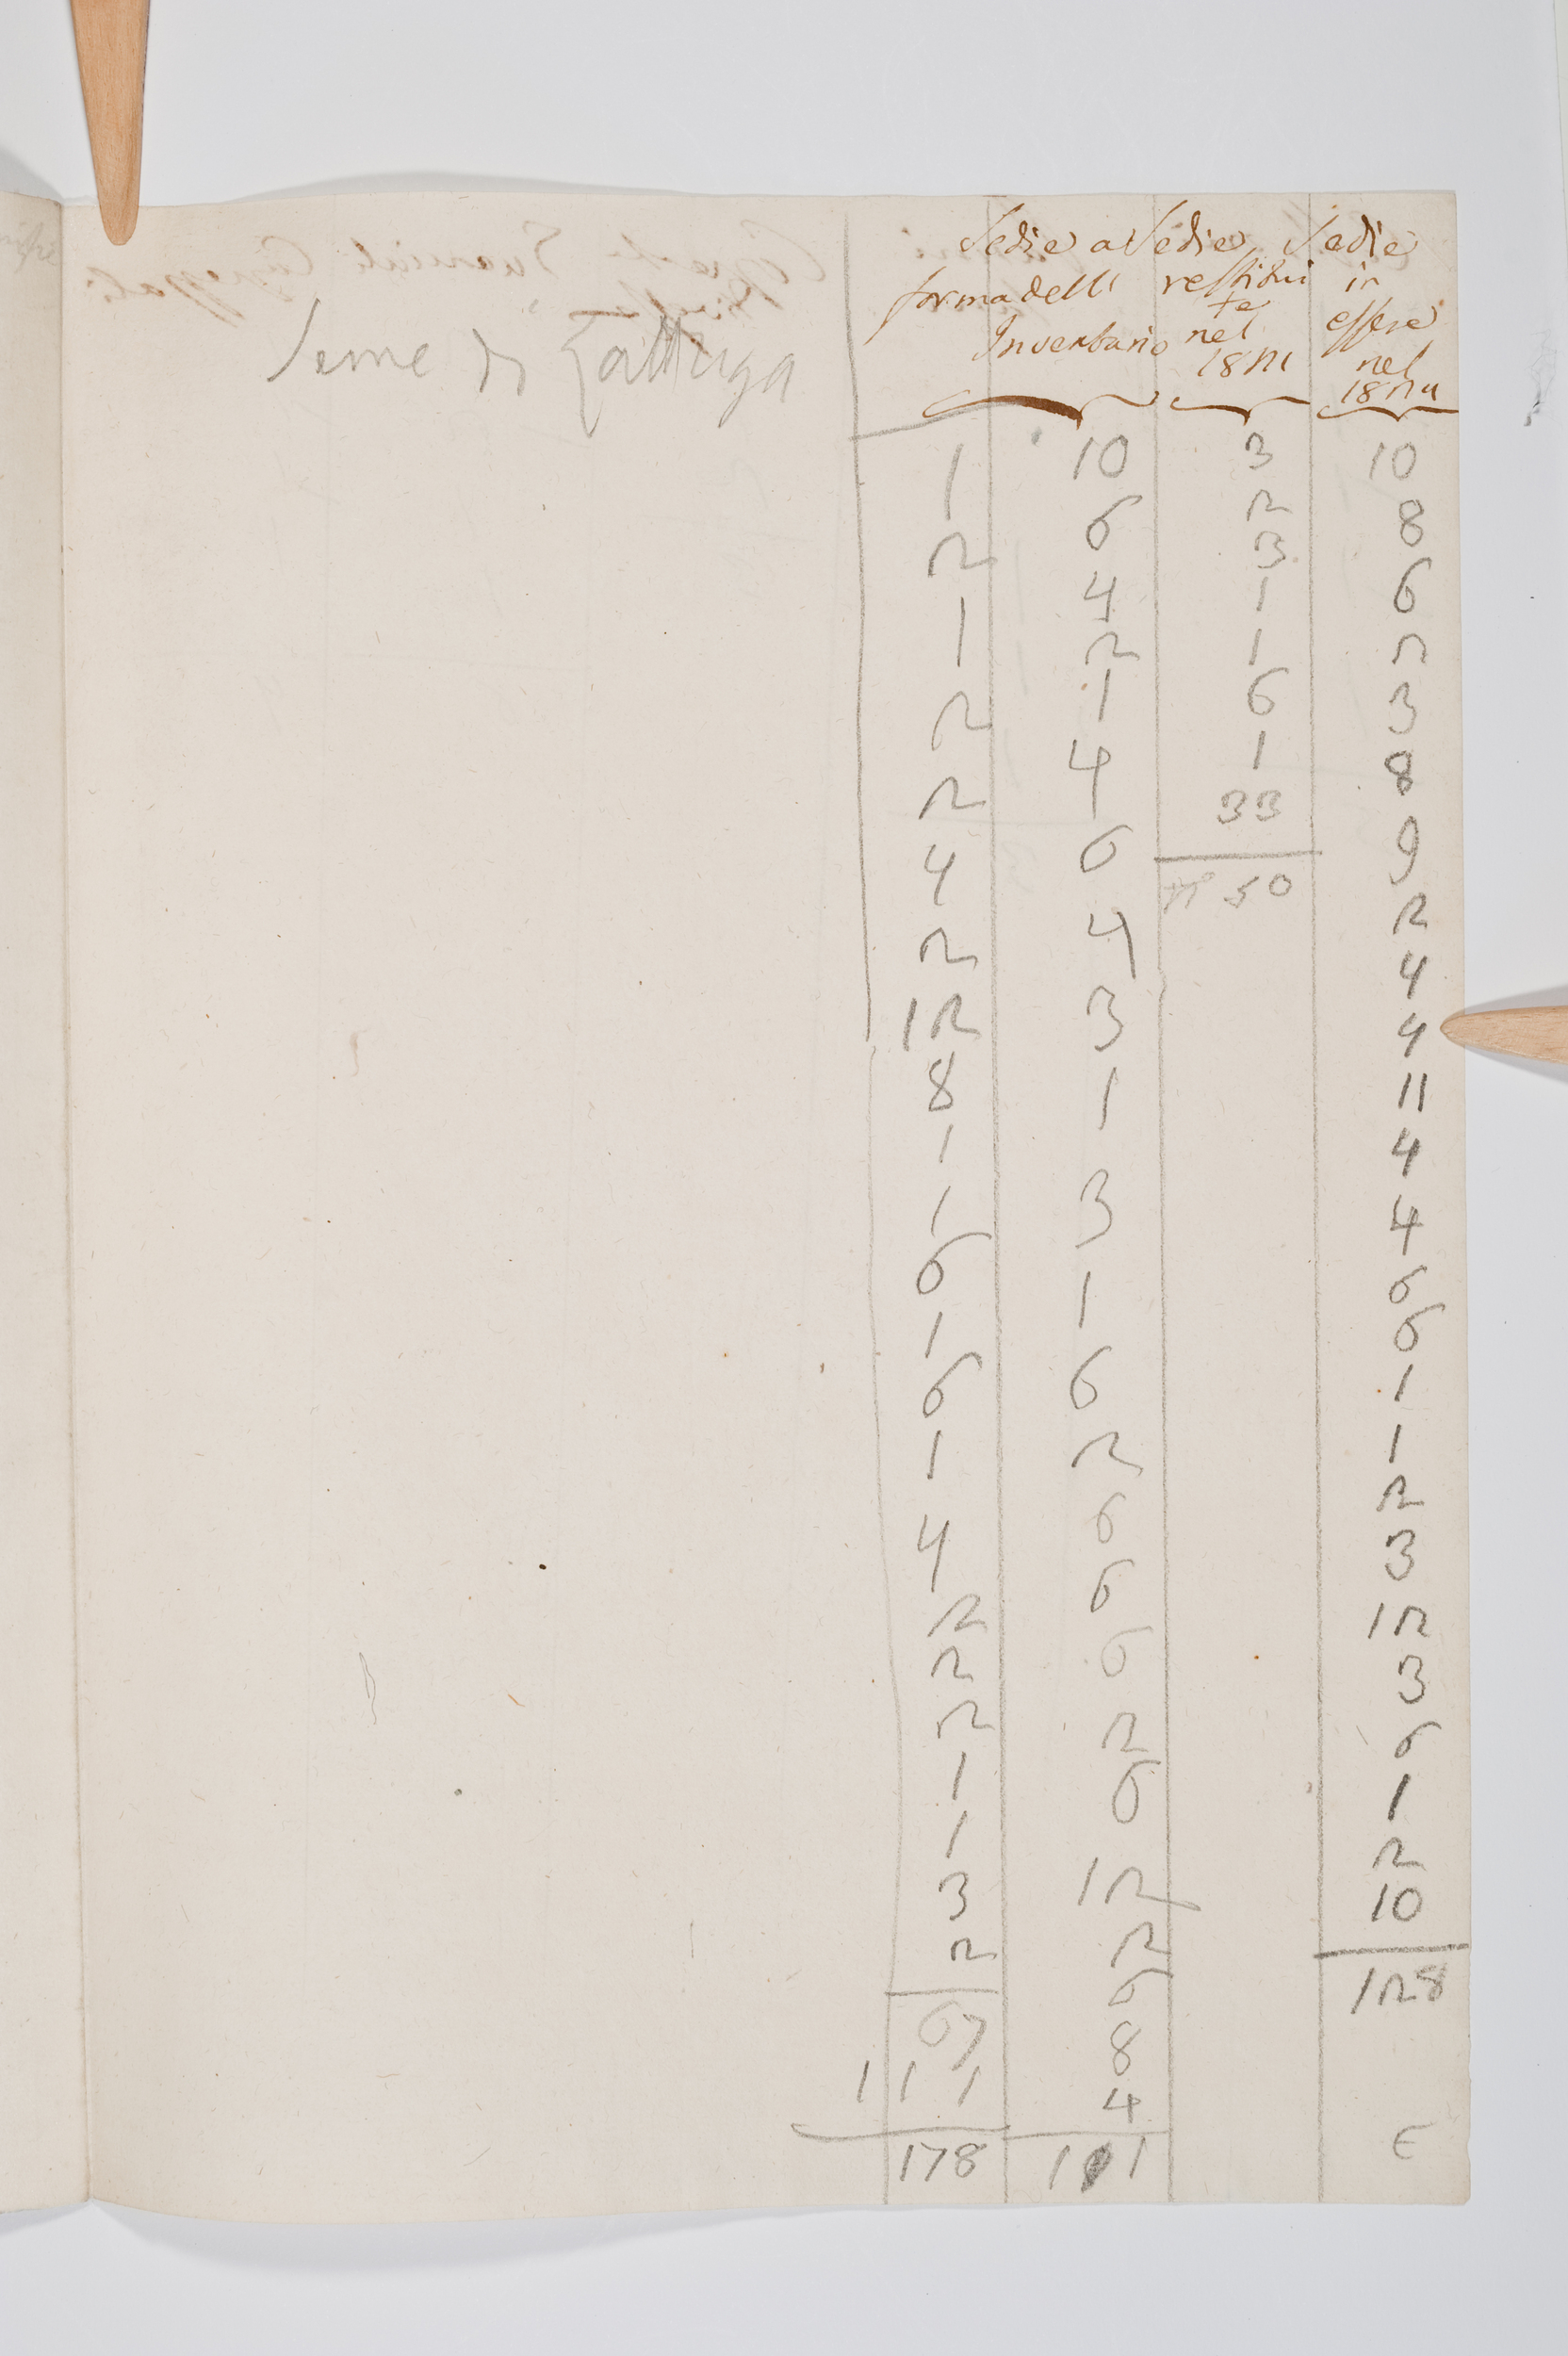 Seme di Lattuga
Sedie a
forma delli
Inventario
1
2
1
2
2
4
2
12
8
1
1
6
1
6
1
4
2
2
2
1
1
3
2
67
111
178
10
6
4
2
1
4
6
4
3
1
3
1
6
2
6
6
6
2
6
12
2
6
8
4
111
Sedie
restitui
te
nel
1821
3
2
3
1
1
6
1
33
n° 50
Sedie
in
essere
nel
1824
10
8
6
2
3
8
9
2
4
4
11
4
4
6
6
1
1
2
3
12
3
6
1
2
10
128